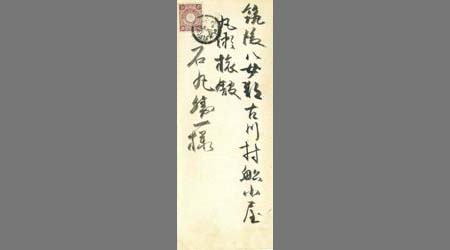 筑後八女郡古川村船小屋
丸 旅館
石丸勝一様